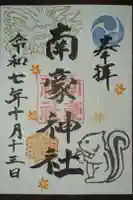 奉拝
南豪神社
令和七年十月十三日